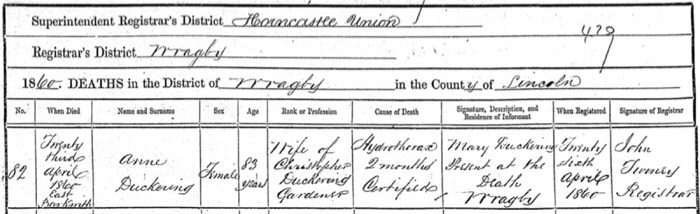 Superintendent Registrar's District Horncastle Union
429
Registrar's District Wragby
1860. DEATHS in the District of Wragby in the County of Lincoln
No. When Died Name and Surname Sex Age Rank or Profession Cause of Death Signature, Description, and Residence of Informant When Registered Signature of Registrar
82
Twenty
third
April
1860
East
Barkwith
Anne
Duckering
Female
83
years
Wife of
Christopher
Duckering
Gardener
Hydrothorax
2 months
Certified
Mary Duckering
Present at the
Death
Wragby
Twenty
sixth
April
1860
John
Registrar